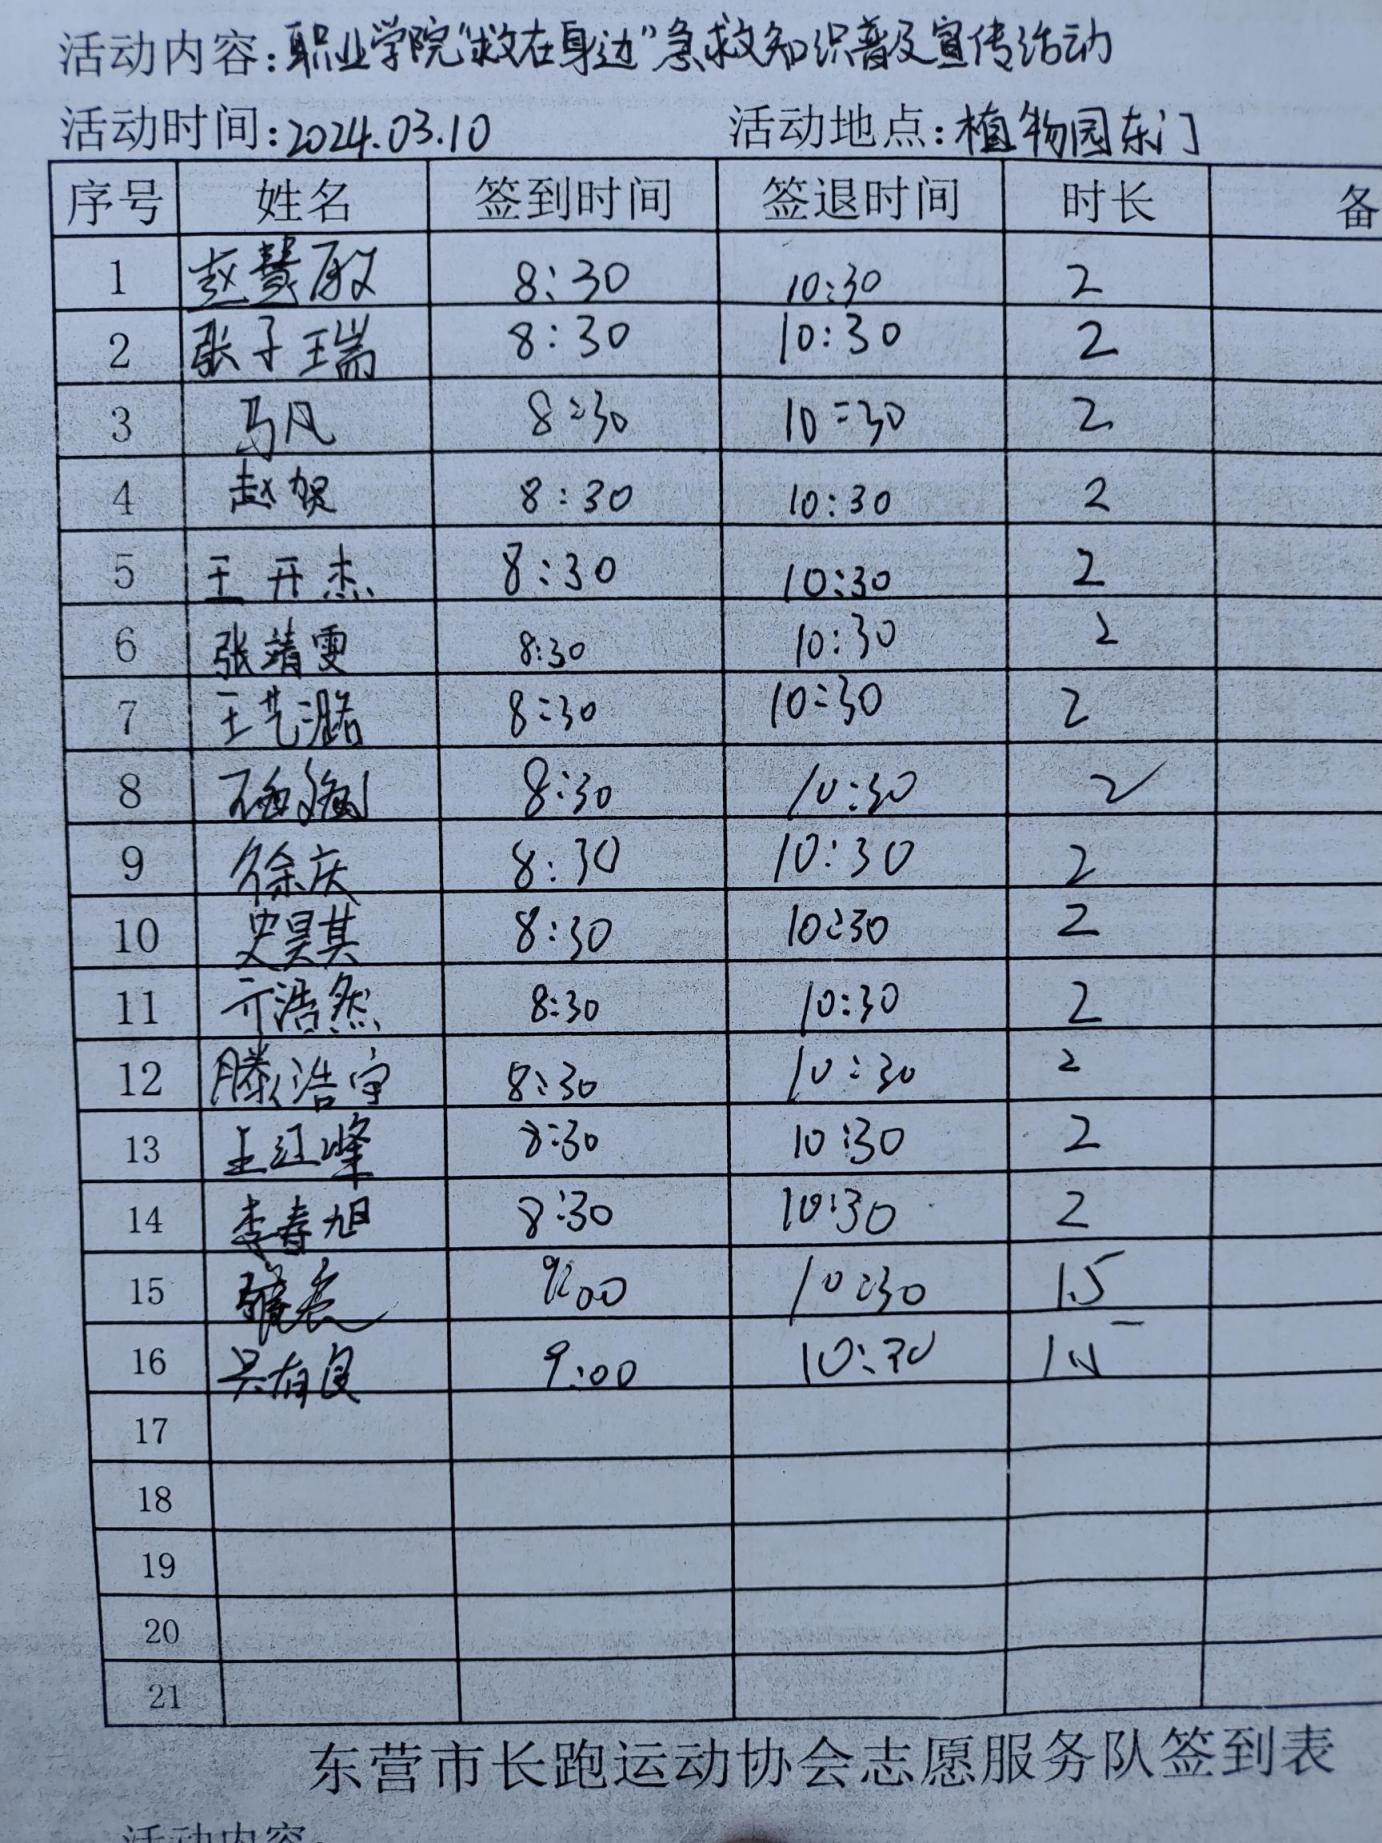 活动内容:职业学院“救在身边”急救知识普及宣传活动
活动时间:2024.03.10 活动地点:植物园东门
序号 姓名 签到时间 签退时间 时长 备
1 赵慧敏 8:30 10:30 2
2 张子瑞 8:30 10:30 2
3 马凤 8:30 10:30 2
4 赵贺 8:30 10:30 2
5 王开杰 8:30 10:30 2
6 张靖雯 8:30 10:30 2
7 王艺潞 8:30 10:30 2
8 8:30 10:30 2
9 徐庆 8:30 10:30 2
10 史昊其 8:30 10:30 2
11 亓浩然 8:30 10:30 2
12 滕浩宇 8:30 10:30 2
13 王江峰 8:30 10:30 2
14 李春旭 8:30 10:30 2
15 9:00 10:30 1.5
16 吴有良 9:00 10:30 1.5
17
18
19
20
21
东营市长跑运动协会志愿服务队签到表
活动内容: